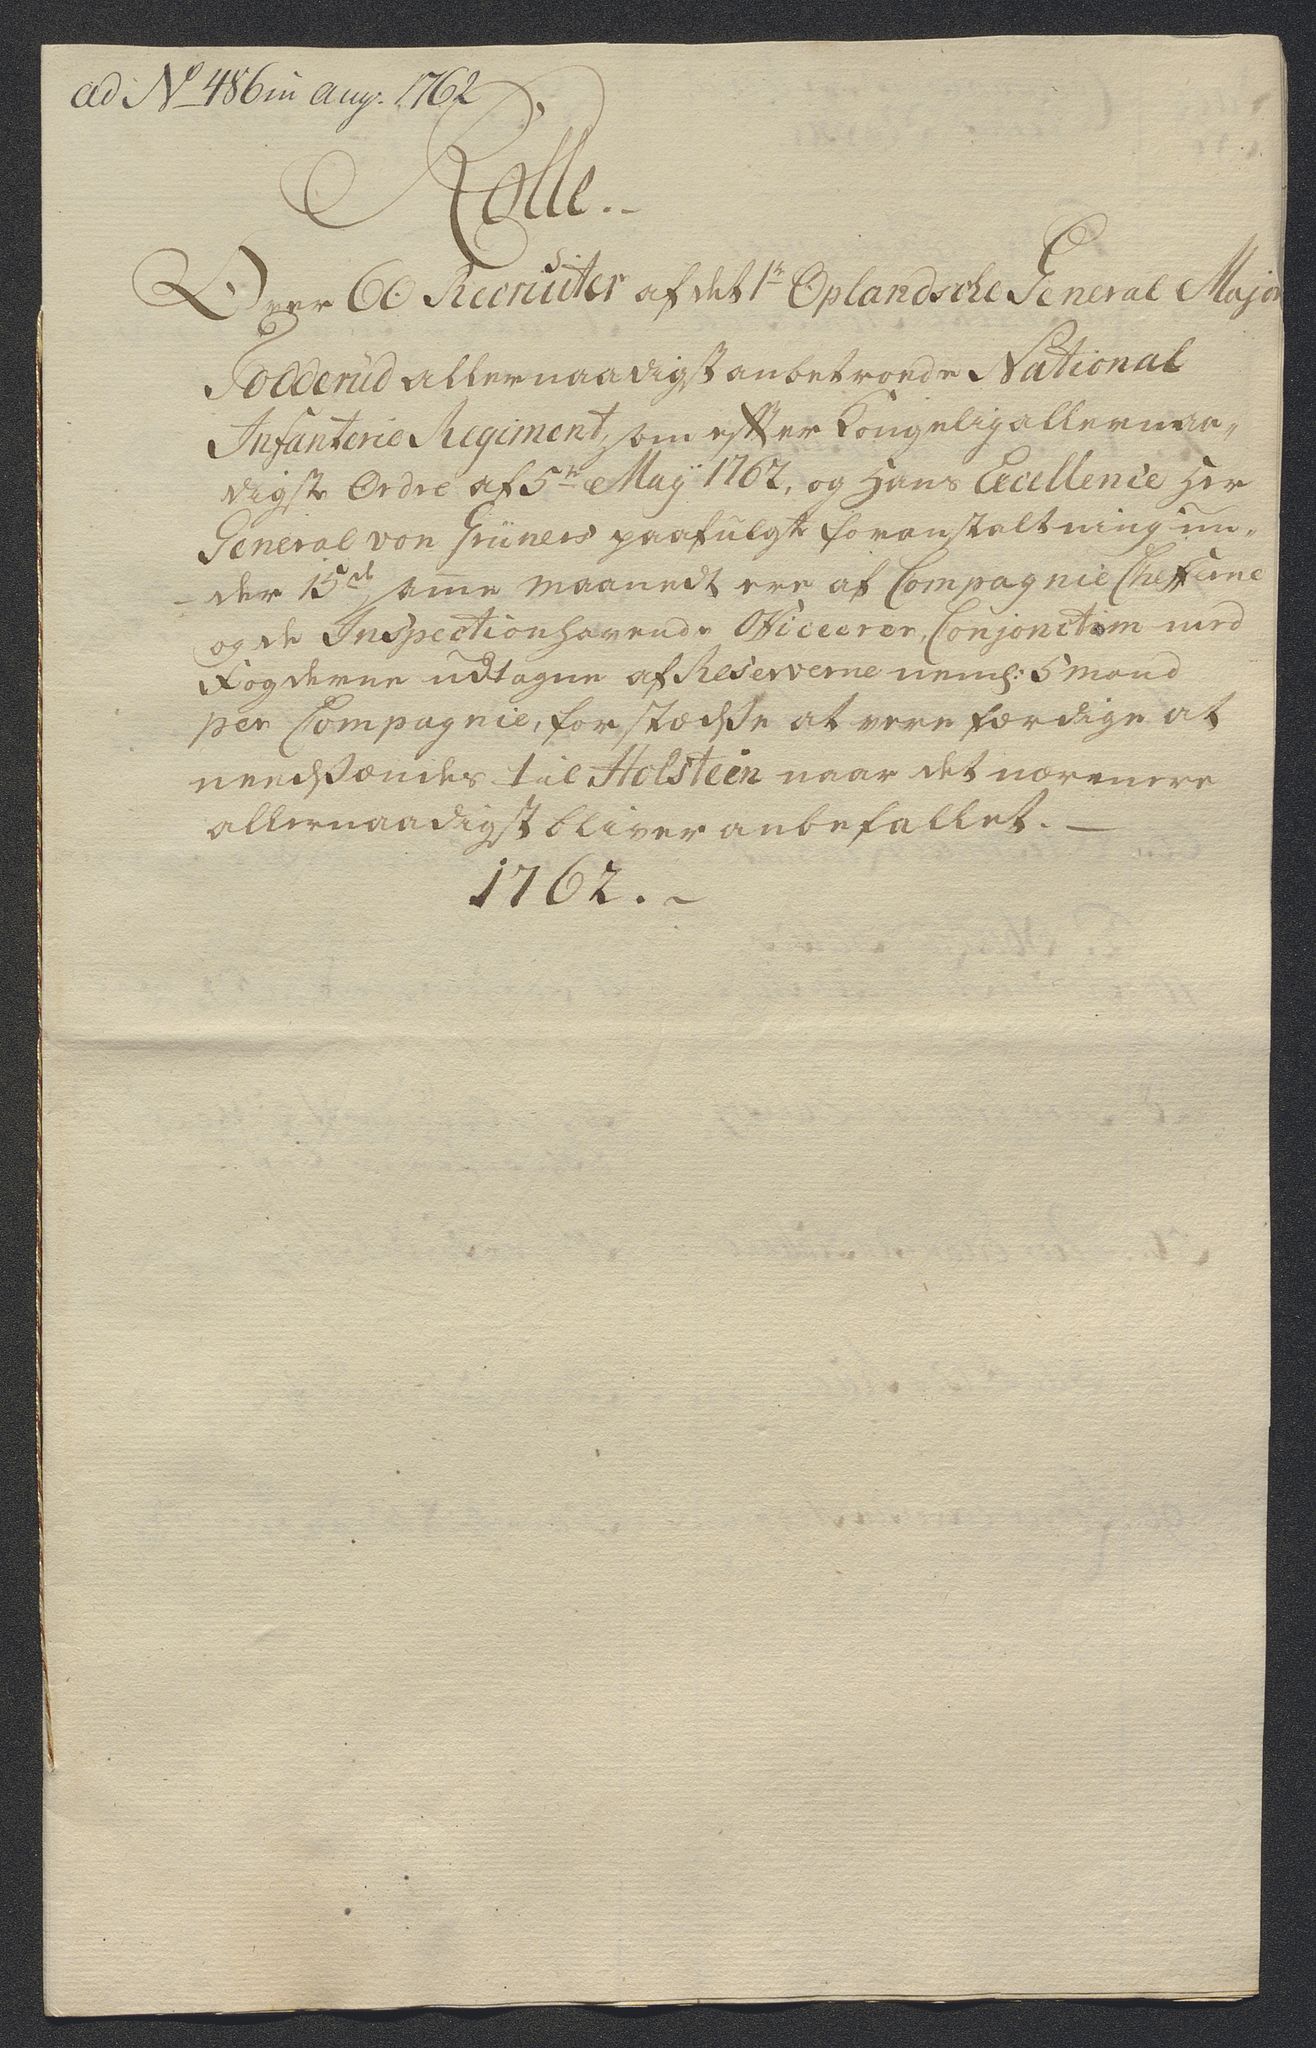 ad No 486 in Aug. 1762
Rolle.
Over 60 Recruiter af det 1te Oplandsche General Major
Todderud allernaadigst anbetroede National
Infanterie Regiment, som efter Kongelig allernaa-
digste Ordre af 5te May 1762, og Hans Excellence Her
General von Grüners paafulgte foranstaltning un-
der 15de samme Maanedt ere af Compagnie Chefferne
og de Inspectionhavende Officeerer, Conjonctim med
Fogderne udtagne af Reserverne neml: 5 mand
per Compagnie, for stædse at vere færdige at
needsændes til Holsteen naar det nærmere
allernaadigst bliver anbefallet.
1762.